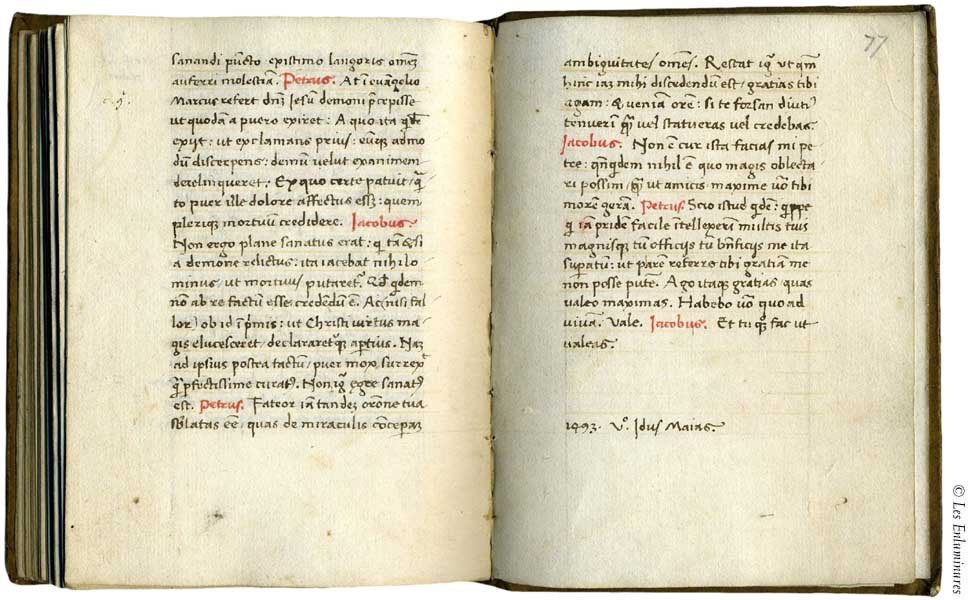 sanandi pu͞cto existimo langoris om̅eʒ
auferri molestia̅. Petrus. At i̅ eua̅gelio
Marcus refert dn̅ʒ Jesu̅ demoni p̅cepisse
ut quoda̅ a puero exiret: A quo ita
exijt: ut exclamans prius: eu̅qʒ admo
du̅ discerpens: demu̅ velut exanimem
derelinqueret. Ex quo certe patuit
to puer ille dolore affectus esseʒ: quem
pleriqʒ mortuu̅ credidere. Jacobus.
Non ergo plane sanatus erat: qi ta̅&si
a demone relictus: ita iacebat nihilo
minus, ut mortuus putaret᷑. q̅dem
no̅ ab re factu̅ esse crede̅du̅ e̅. Ac (nisi fal
lor) ob id i̅p̅mis: ut Christi virtus ma
gis elucesceret, declararet᷑qʒ ap̅tius. Naʒ
ad ipsius postra tactu̅, puer mox surrex͛
p̅fectissime curatꝰ. Non igʳ egre sanatꝰ
est. Petrus. Fateor ia̅ tandeʒ or̅one tua
sb̅latas e̅e̅, quas de miraculis co̅cepaʒ
77
ambiguitates om̅es. Restat igʳ ut qm̅
hinc iaʒ mihi discedendu̅ est, gratias tibi
agam: & venia̅ ore̅: si te forsan diutiꝰ
tenueri̅ vel statueras vel credebas.
Jacobus. Non e̅ cur ista facias mi pe
tre: qn̅q̅dem nihil e̅ quo magis oblecta
ri possim, ut amicis maxime vo̅ tibi
more̅ gera̅. Petrus. Scio istud q̅de̅: q̅ppe
qi ia̅ pride̅ facile i̅tellexeri̅ multis tuis
magnisqʒ tu̅ officijs tu̅ bn̅ficijs me ita
sup̅atu̅: ut pare̅ referre tibi gratia̅ me
non posse pute̅. Ago itaqʒ gratias, quas
valeo maximas. Habebo vo̅ quo ad
viva̅. Vale. Jacobus. Et tu qʒ fac ut
valeas.
1493. Vº. Idus Maias.
© Les Enluminures